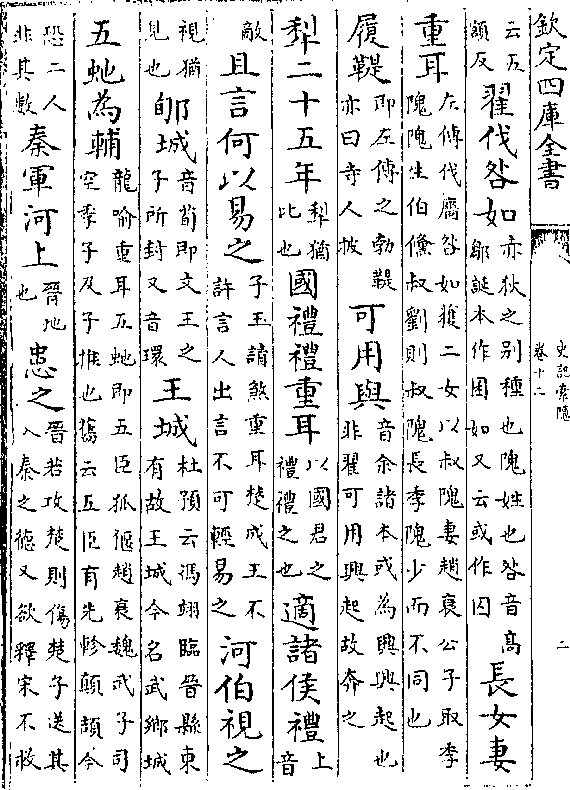 欽定四庫全書
史記索隱
卷十二
二
云五
頟反
翟伐咎如
亦狄之别種也隗姓也咎音髙
鄒誕本作囷如又云或作囚
長女妻
重耳
左傳伐廧咎如獲二女以叔隗妻趙衰公子取季
隗隗生伯儵叔劉則叔隗長季隗少而不同也
履鞮
即左傳之勃鞮
亦曰寺人披
可用與
音余諸本或為興興起也
非翟可用興起故奔之
犁二十五年
犁猶
比也
國禮禮重耳
以國君之
禮禮之也
適諸侯禮
上
音
敵
且言何以易之
子玉請煞重耳楚成王不
許言人出言不可輕易之
河伯視之
視猶
見也
郇城
音荀即文王之
子所封又音環
王城
杜預云馮翊臨晉縣東
有故王城今名武鄉城
五虵為輔
龍喻重耳五虵即五臣狐偃趙衰魏武子司
空季子及子推也舊云五臣有先軫顛頡今
恐二人
非其數
秦軍河上
晉地
也
患之
晉若攻楚則傷楚子送其
入秦之德又欲釋宋不救